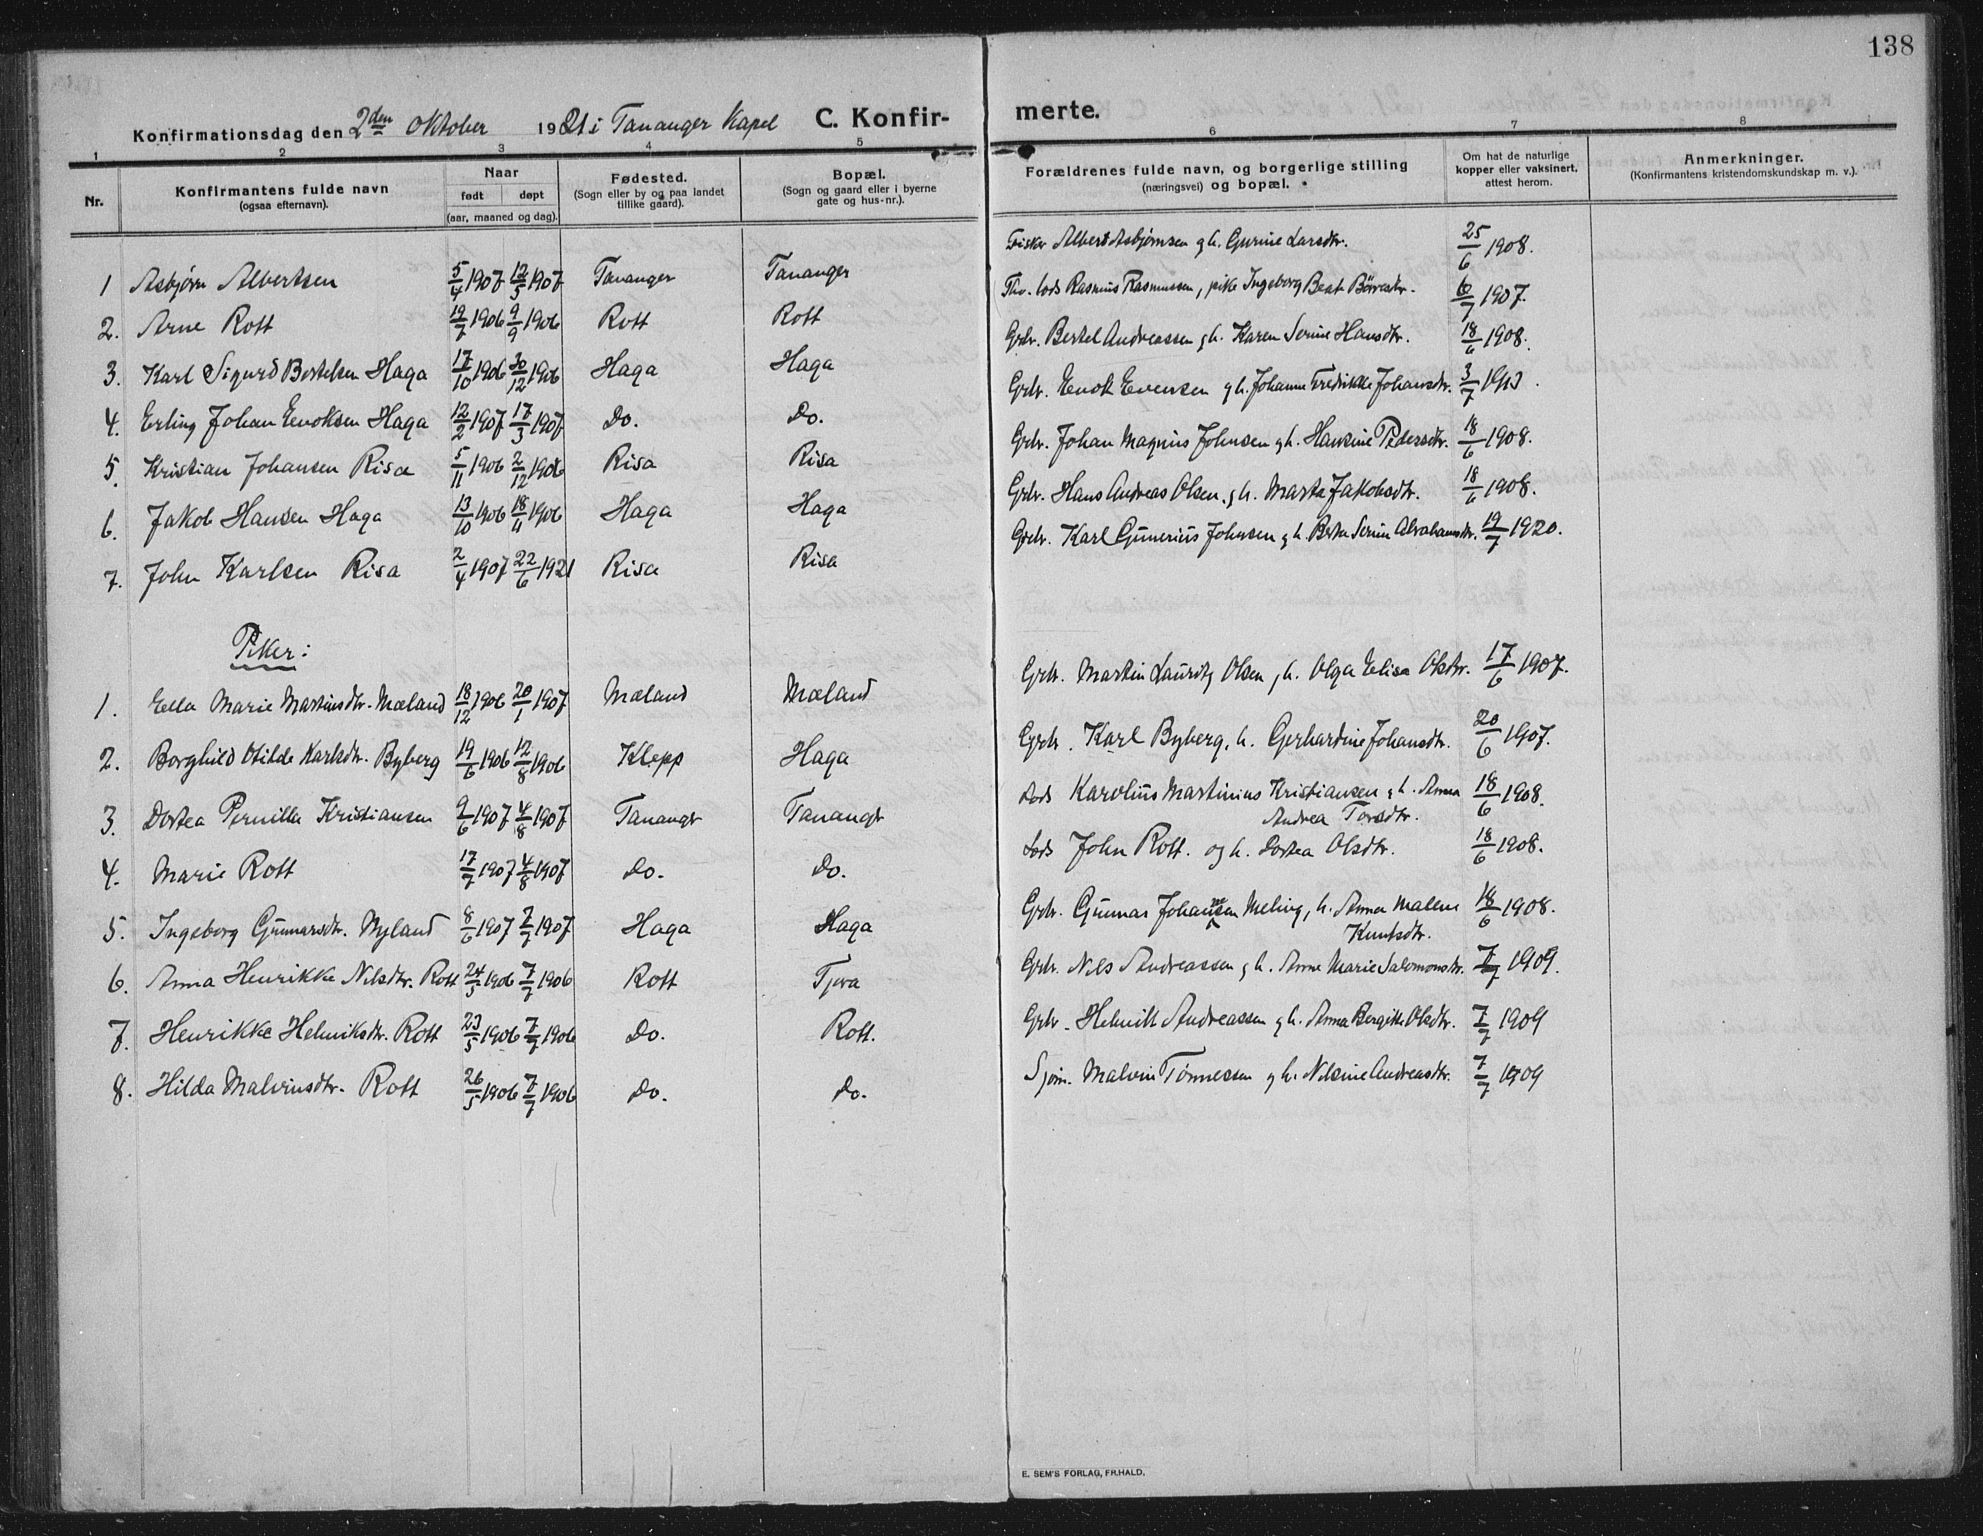 138
Konfirmationsdag den 2den Oktober 1921 i Tananger Kapel C. Konfir-
merte.
1 2 3 4 5
6 7 8
Nr. Konfirmantens fulde navn (ogsaa efternavn). Naar født døpt (aar, maaned og dag). Fødested. (Sogn eller by og paa landet tillike gaard). Bopæl. (Sogn og gaard eller i byerne gate og hus-nr.).
Forældrenes fulde navn, og borgerlige stilling (næringsvei) og bopæl. Om hat de naturlige kopper eller vaksinert, attest herom. Anmerkninger. (Konfirmantens kristendomskundskap m. v.).
1 Asbjørn Albertsen 5/4 1907 12/5 1907 Tananger Tananger
Fisker Albert Asbjørnsen og h. Gurine Larsdtr. 25/6 1908.
2. Arne Rott 19/7 1906 9/9 1906 Rott Rott
lods Rasmus Rasmussen, pike Ingeborg Beat Børresdtr. 6/7 1907.
3. Karl Sigurd Bertelsen Haga 17/10 1906 30/12 1906 Haga Haga
Grbr. Bertel Andreassen og h. Karen Serine Hansdtr. 18/6 1908.
4. Erling Johan Enoksen Haga 12/2 1907 17/3 1907 Do. Do.
Grbr. Enok Evensen og h. Johanne Fredrikke Johansdtr. 3/7 1913.
5. Kristian Johansen Risa 5/11 1906 2/12 1906 Risa Risa
Grbr. Johan Magnus Johnsen og h. Hansine Pedersdtr. 18/6 1908.
6. Jakob Hansen Haga 13/10 1906 18/11 1906 Haga Haga
Grbr. Hans Andreas Olsen og h. Marta Jakobsdtr. 18/6 1908.
7. John Karlsen Risa 2/4 1907 22/6 1921 Risa Risa
Grbr. Karl Gunerius Johnsen og h. Berta Serine Abrahamsdtr. 19/7 1920.
Piker:
1. Ella Marie Martinsdtr. Mæland 18/12 1906 20/1 1907 Mæland Mæland
Grbr. Martin Lauritz Olsen, h. Olga Elisa Olsdtr. 17/6 1907.
2. Borghild Otilde Karlsdtr. Byberg 19/6 1906 12/8 1906 Klepp Haga
Grbr. Karl Byberg, h. Gerhardine Johansdtr. 20/6 1907.
3. Dortea Pernilla Kristiansen 9/6 1907 4/8 1907 Tananger Tananger
Lods Karolius Martinius Kristiansen og h. Anna Andrea Torsdtr. 18/6 1908.
4. Marie Rott 17/7 1907 4/8 1907 Do. Do.
Lods John Rott. og h. Dortea Olsdtr. 18/6 1908.
5. Ingeborg Gunnarsdtr. Myland 8/6 1907 7/7 1907 Haga Haga
Grbr. Gunnar Johannesen Meling, h. Anna Malene Knutsdtr. 18/6 1908.
6. Anna Henrikke Nilsdtr. Rott 24/5 1906 7/7 1906 Rott Tjora
Grbr. Nils Andreassen og h. Anne Marie Salomonsdtr. 7/7 1909.
7. Henrikke Helmiksdtr. Rott 23/5 1906 7/7 1906 Do. Rott.
Grbr. Helmik Andreassen og h. Anna Bergitte Olsdtr. 7/7 1909
8. Hilda Malvinsdtr. Rott 26/5 1906 7/7 1906 Do. Do.
Sjøm. Malvin Tønnessen og h. Nilsine Andreasdtr. 7/7 1909
E. SEM'S FORLAG, FR.HALD.